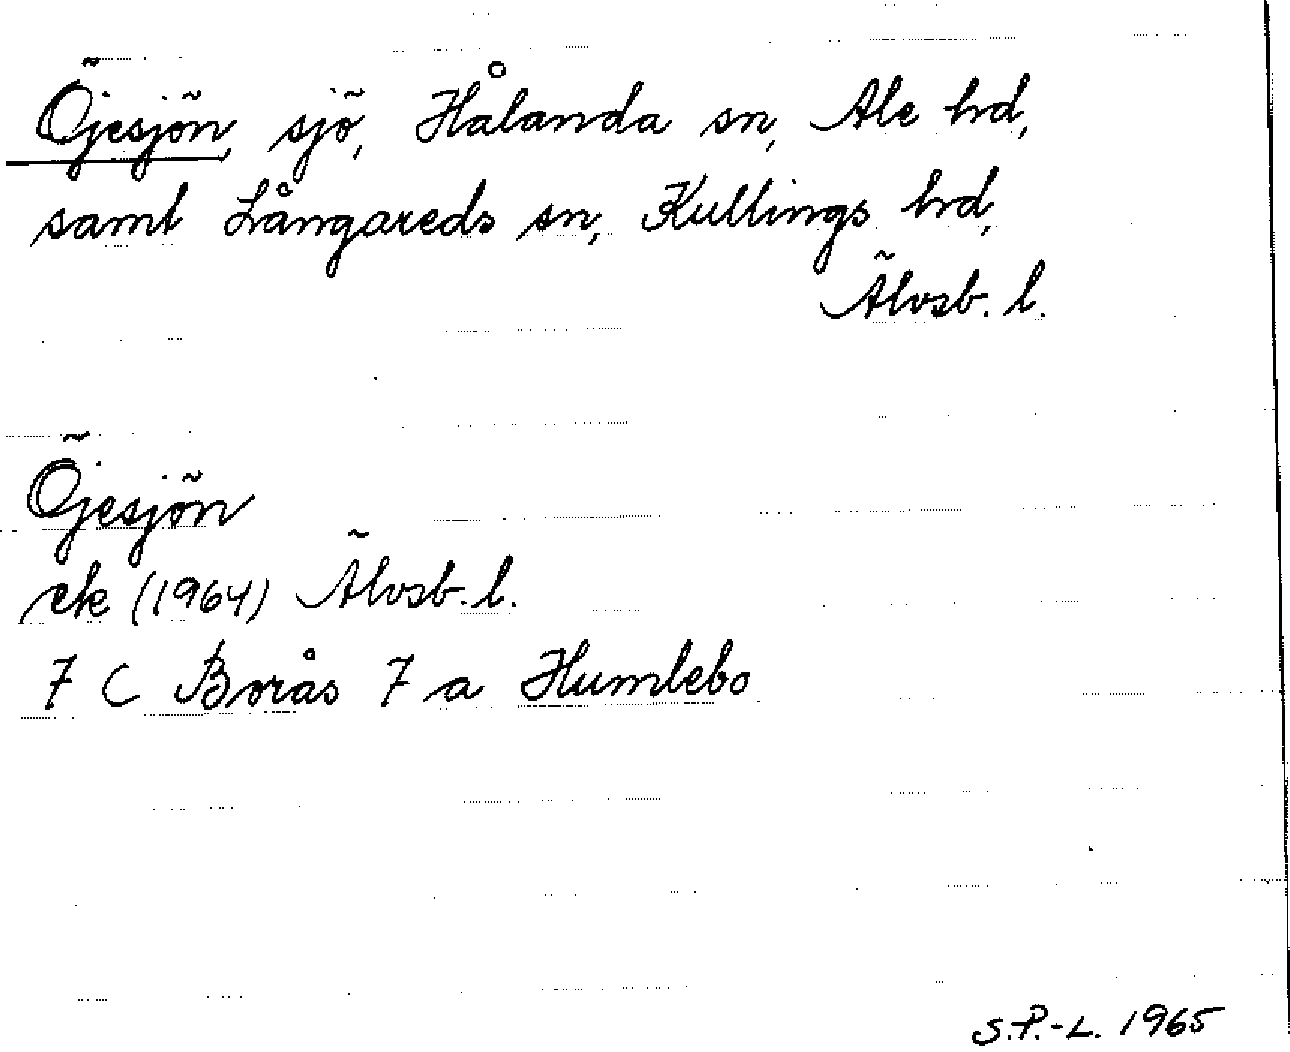 Öjesjön, sjö, Hålanda sn, Ale hd,
samt Långareds sn, Kullings hd,
Älvsb. l.
Öjesjön
ek (1964) Älvsb. l.
7 C Borås 7 a Humlebo
S.P.-L. 1965